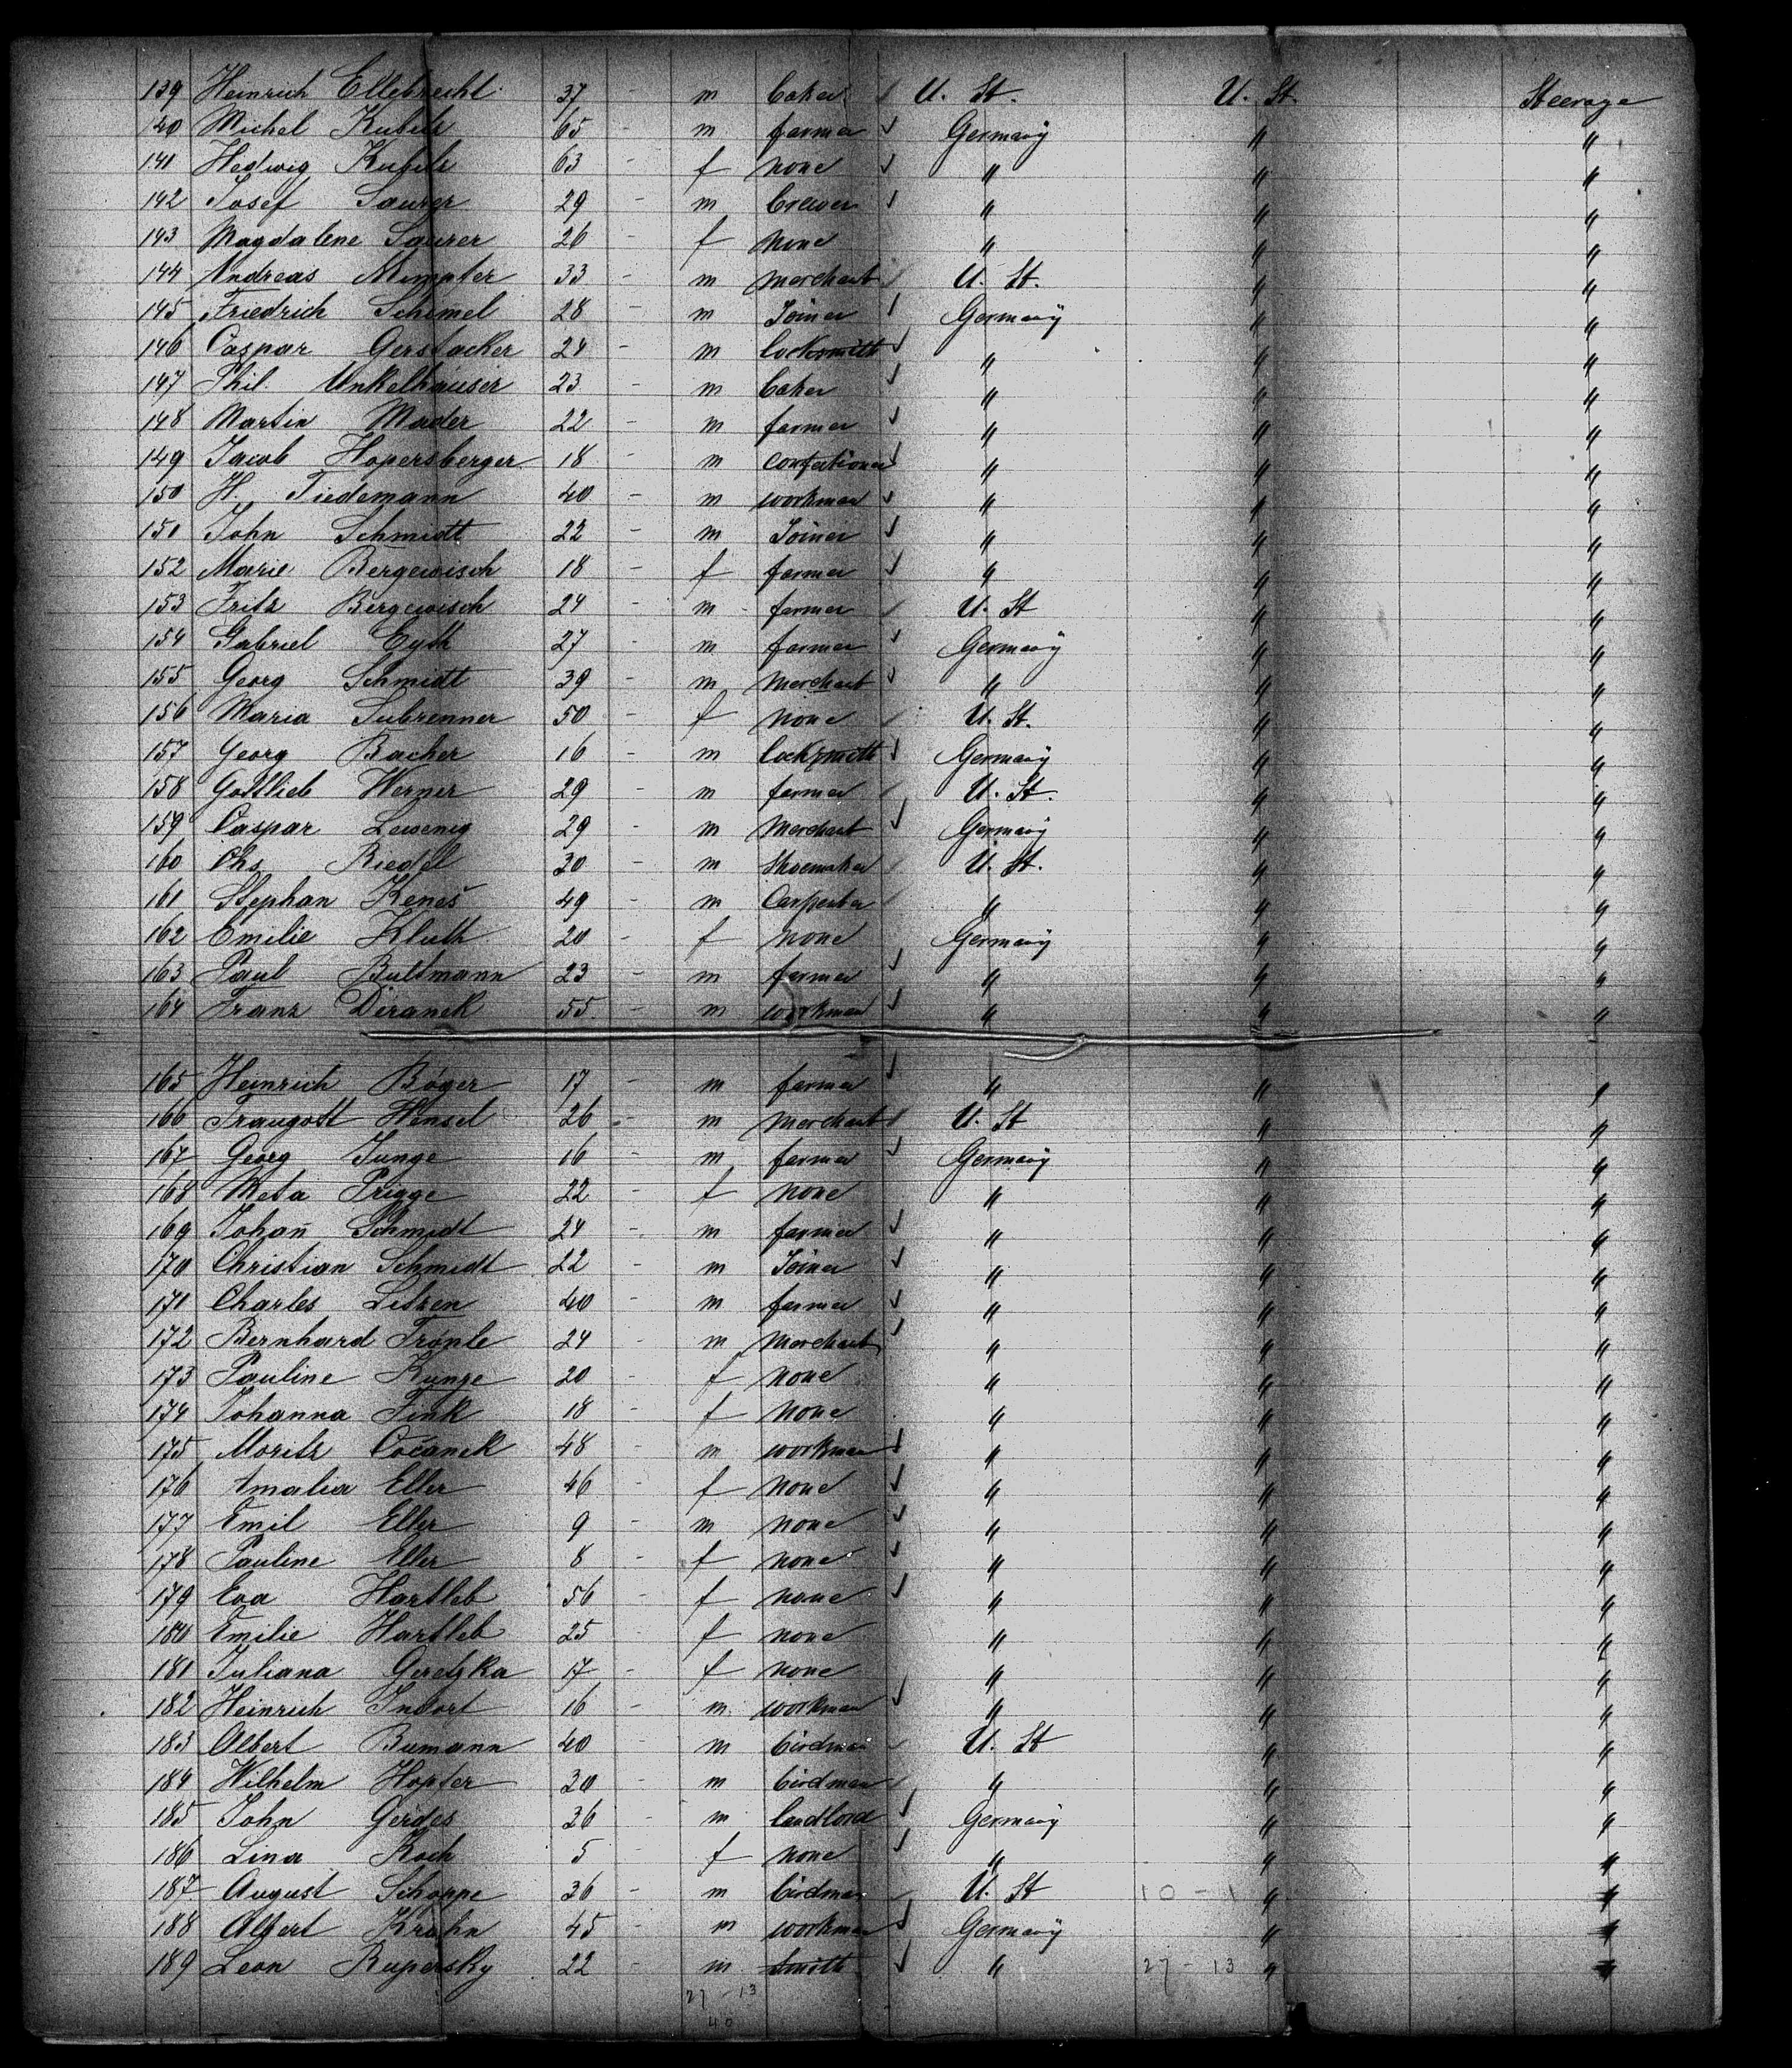 139 Heinrich Ellebrecht 37 - m baker / U. St. U. St. Steerage
140 Michel 65 - m farmer ✓ Germany " "
141 Hedwig 63 - f none ✓ " " "
142 Josef Saurer 29 - m brewer ✓ " " "
143 Magdalene Saurer 26 - f none " " "
144 Andreas 33 - m merchant / U. St. " "
145 Friedrich Schimel 28 - m Joiner ✓ Germany " "
146 Caspar Gerstacker 24 - m locksmith ✓ " " "
147 Phil. Unkelhäuser 23 - m baker ✓ " " "
148 Martin Mader 22 - m farmer ✓ " " "
149 Jacob Hopersberger 18 - m confectioner ✓ " " "
150 H. Tiedemann 40 - m workman ✓ " " "
151 John Schmidt 22 - m Joiner ✓ " " "
152 Marie Bergewisch 18 - f farmer ✓ " " "
153 Fritz Bergewisch 24 - m - farmer / U. St " "
154 Gabriel Eyth 27 - m farmer ✓ Germany " "
155 Georg Schmidt 39 - m merchant ✓ " " "
156 Maria Subrenner 50 - f none / U. St. " "
157 Georg Bacher 16 - m locksmith ✓ Germany " "
158 Gottlieb Werner 29 - m farmer / U. St. " "
159 Caspar Lewenig 29 - m Merchant ✓ Germany " "
160 Chs Riedel 30 - m Shoemaker / U. St. " "
161 Stephan Kenes 49 - m Carpenter / " " "
162 Emilie Kluth 20 - f none Germany " "
163 Paul Bultmann 23 - m farmer ✓ " " "
164 Franz Diranek 55 - m workman ✓ " " "
165 Heinrich Böger 17 - m farmer ✓ " " "
166 Traugott Hensel 26 - m merchant / U. St " "
167 Georg Junge 16 - m farmer ✓ Germany " "
168 Meta Prigge 22 - f none " " "
169 Johan̄ Schmidt 24 - m farmer ✓ " " "
170 Christian Schmidt 22 - m Joiner ✓ " " "
171 Charles Litzen 40 - m farmer ✓ " " "
172 Bernhard Trönle 24 - m Merchant ✓ " " "
173 Pauline Kunge 20 - f none " " "
174 Johanna Fink 18 - f none " " "
175 Moritz Cocanek 48 - m workman ✓ " " "
176 Amalia Eller 46 - f none ✓ " " "
177 Emil Eller 9 - m none ✓ " " "
178 Pauline Eller 8 - f none ✓ " " "
179 Eva Hartleb 56 - f none ✓ " " "
180 Emilie Hartleb 25 - f none " " "
181 Juliana Geretzka 17 - f none " " "
182 Heinrich Indort 16 - m workman ✓ " " "
183 Albert Bumann 40 - m birdman / U. St " "
184 Wilhelm Hopfer 30 - m birdman / " " "
185 John Gerdes 36 - m landlord ✓ Germany " "
186 Lina Koch 5 - f none ✓ " " "
187 August Schoppe 36 - m birdman / U. St 10 - 1 " "
188 Albert Krohn 45 - m workman ✓ Germany " "
189 Leon Rupersky 22 - m smith ✓ " 27 - 13 " "
27 - 13
40